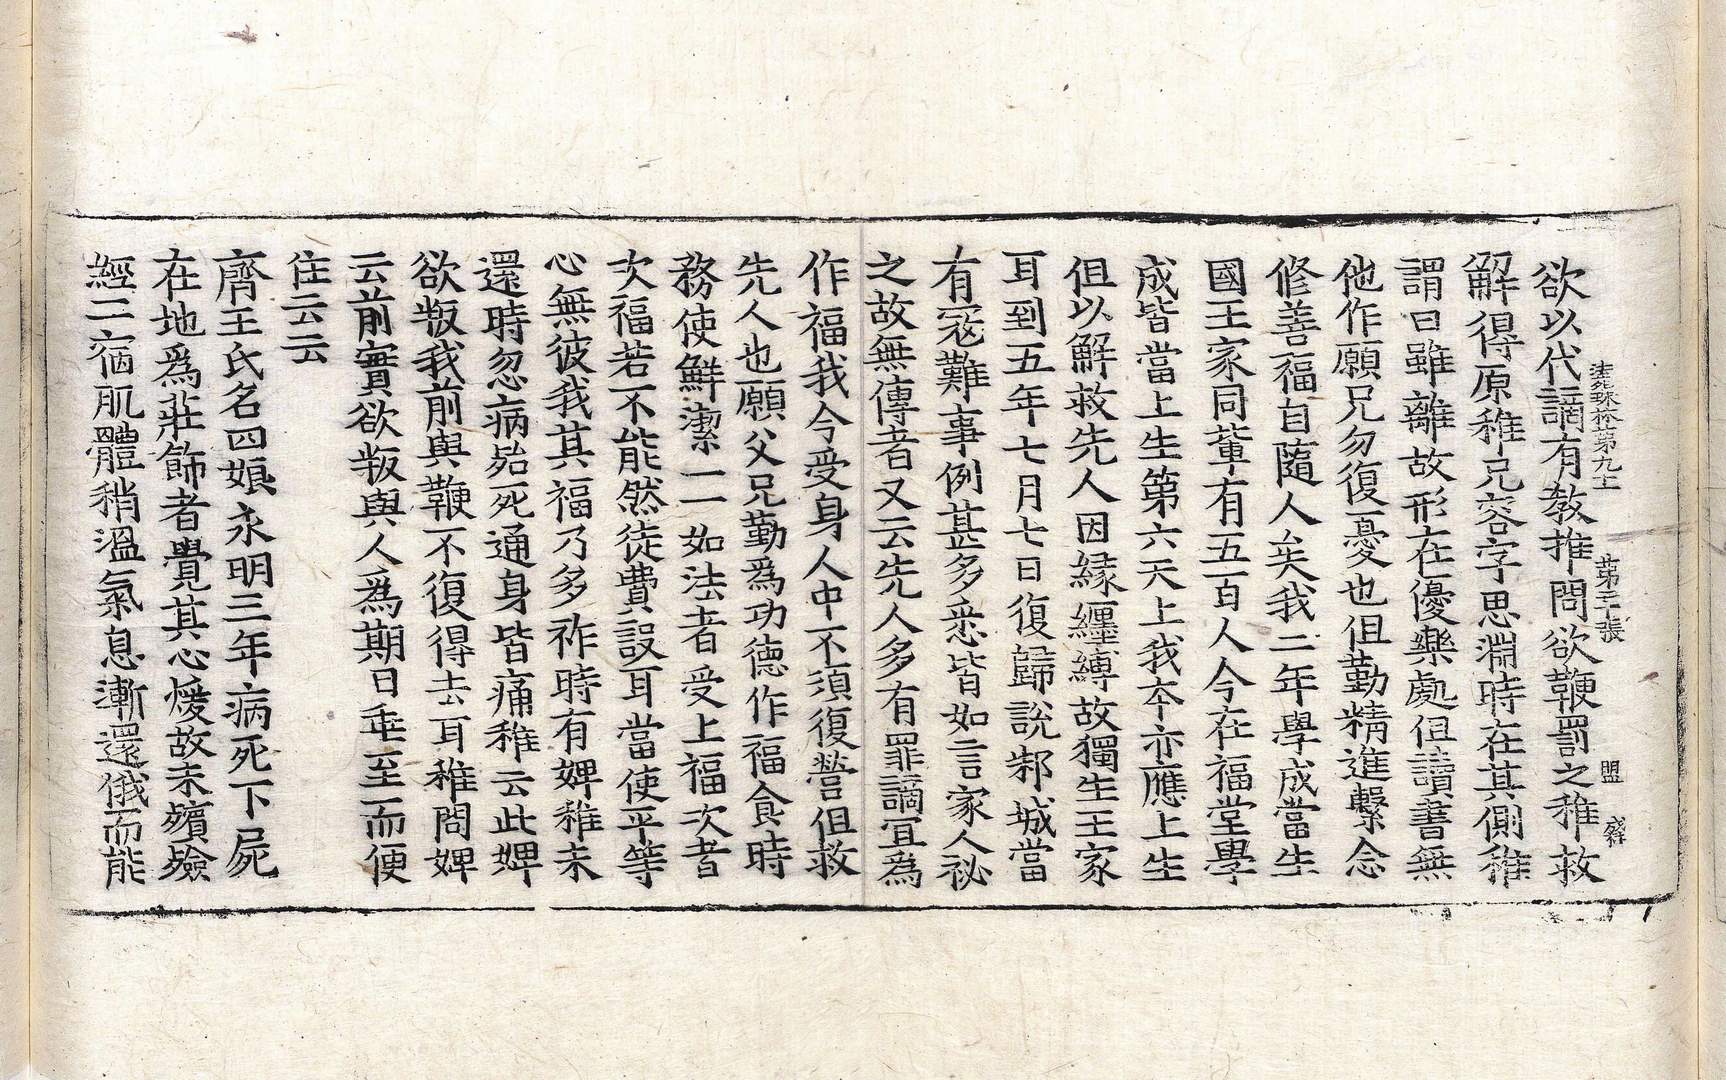 欲以代謫有教推問欲鞭罰之稚救
解得原稚兄容字思淵時在其側稚
謂曰雖離故形在優樂處但讀書無
他作願兄勿復憂也但勤精進繫念
修善福自隨人矣我二年學成當生
國王家同輩有五百人今在福堂學
成皆當上生第六天上我本亦應上生
但以解救先人因緣纏縛故獨生王家
耳到五年七月七日復歸說邾城當
有寇難事例甚多悉皆如言家人祕
之故無傳者又云先人多有罪謫冝為
作福我今受身人中不須復營但救
先人也願父兄勤為功德作福食時
務使鮮潔一一如法者受上福次者
次福若不能然徒費設耳當使平等
心無彼我其福乃多祚時有婢稚未
還時忽病殆死通身皆痛稚云此婢
欲叛我前與鞭不復得去耳稚問婢
云前實欲叛與人為期日垂至而便
住云云
齊王氏名四娘永明三年病死下屍
在地為莊飾者覺其心煖故未殯殮
經二宿肌體稍溫氣息漸還俄而能